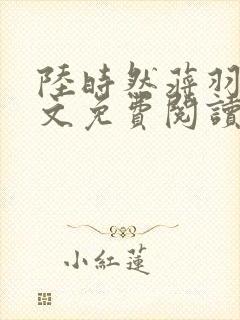 陸時然蒋羽
文免費閱讀
小紅蓮